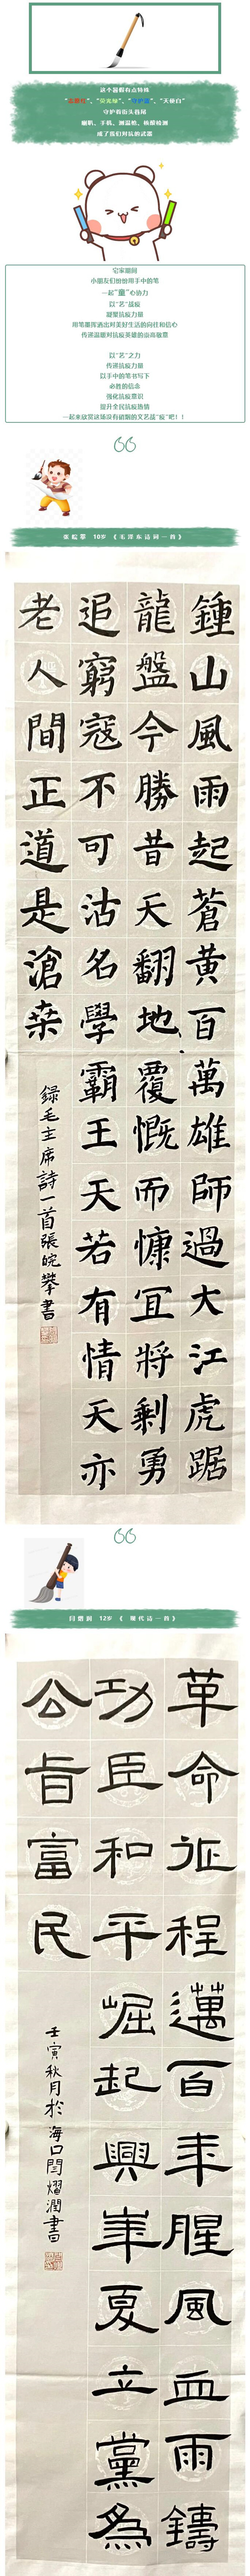 这个暑假有点特殊
“志愿红”、“荧光绿”、“守护蓝”、“天使白”
守护着街头巷尾
喇叭、手机、测温枪、核酸检测
成了我们对抗的武器
宅家期间
小朋友们纷纷用手中的笔
一起“童”心协力
以“艺”战疫
凝聚抗疫力量
用笔墨挥洒出对美好生活的向往和信心
传递温暖对抗疫英雄的崇高敬意
以“艺”之力
传递抗疫力量
以手中的笔书写下
必胜的信念
强化抗疫意识
提升全民抗疫热情
一起来欣赏这场没有硝烟的文艺战“疫”吧！！
张皖攀 10岁 《毛泽东诗词一首》
鍾山風雨起蒼黄百萬雄師過大江虎踞
龍盤今勝昔天翻地覆慨而慷宜將剩勇
追窮寇不可沽名學霸王天若有情天亦
老人間正道是滄桑
録毛主席詩一首張皖攀書
闫熠润 12岁 《 现代诗一首》
革命征程邁百年腥風血雨鑄
功臣和平崛起興華夏立黨為
公旨富民
壬寅秋月於海口閆熠潤書